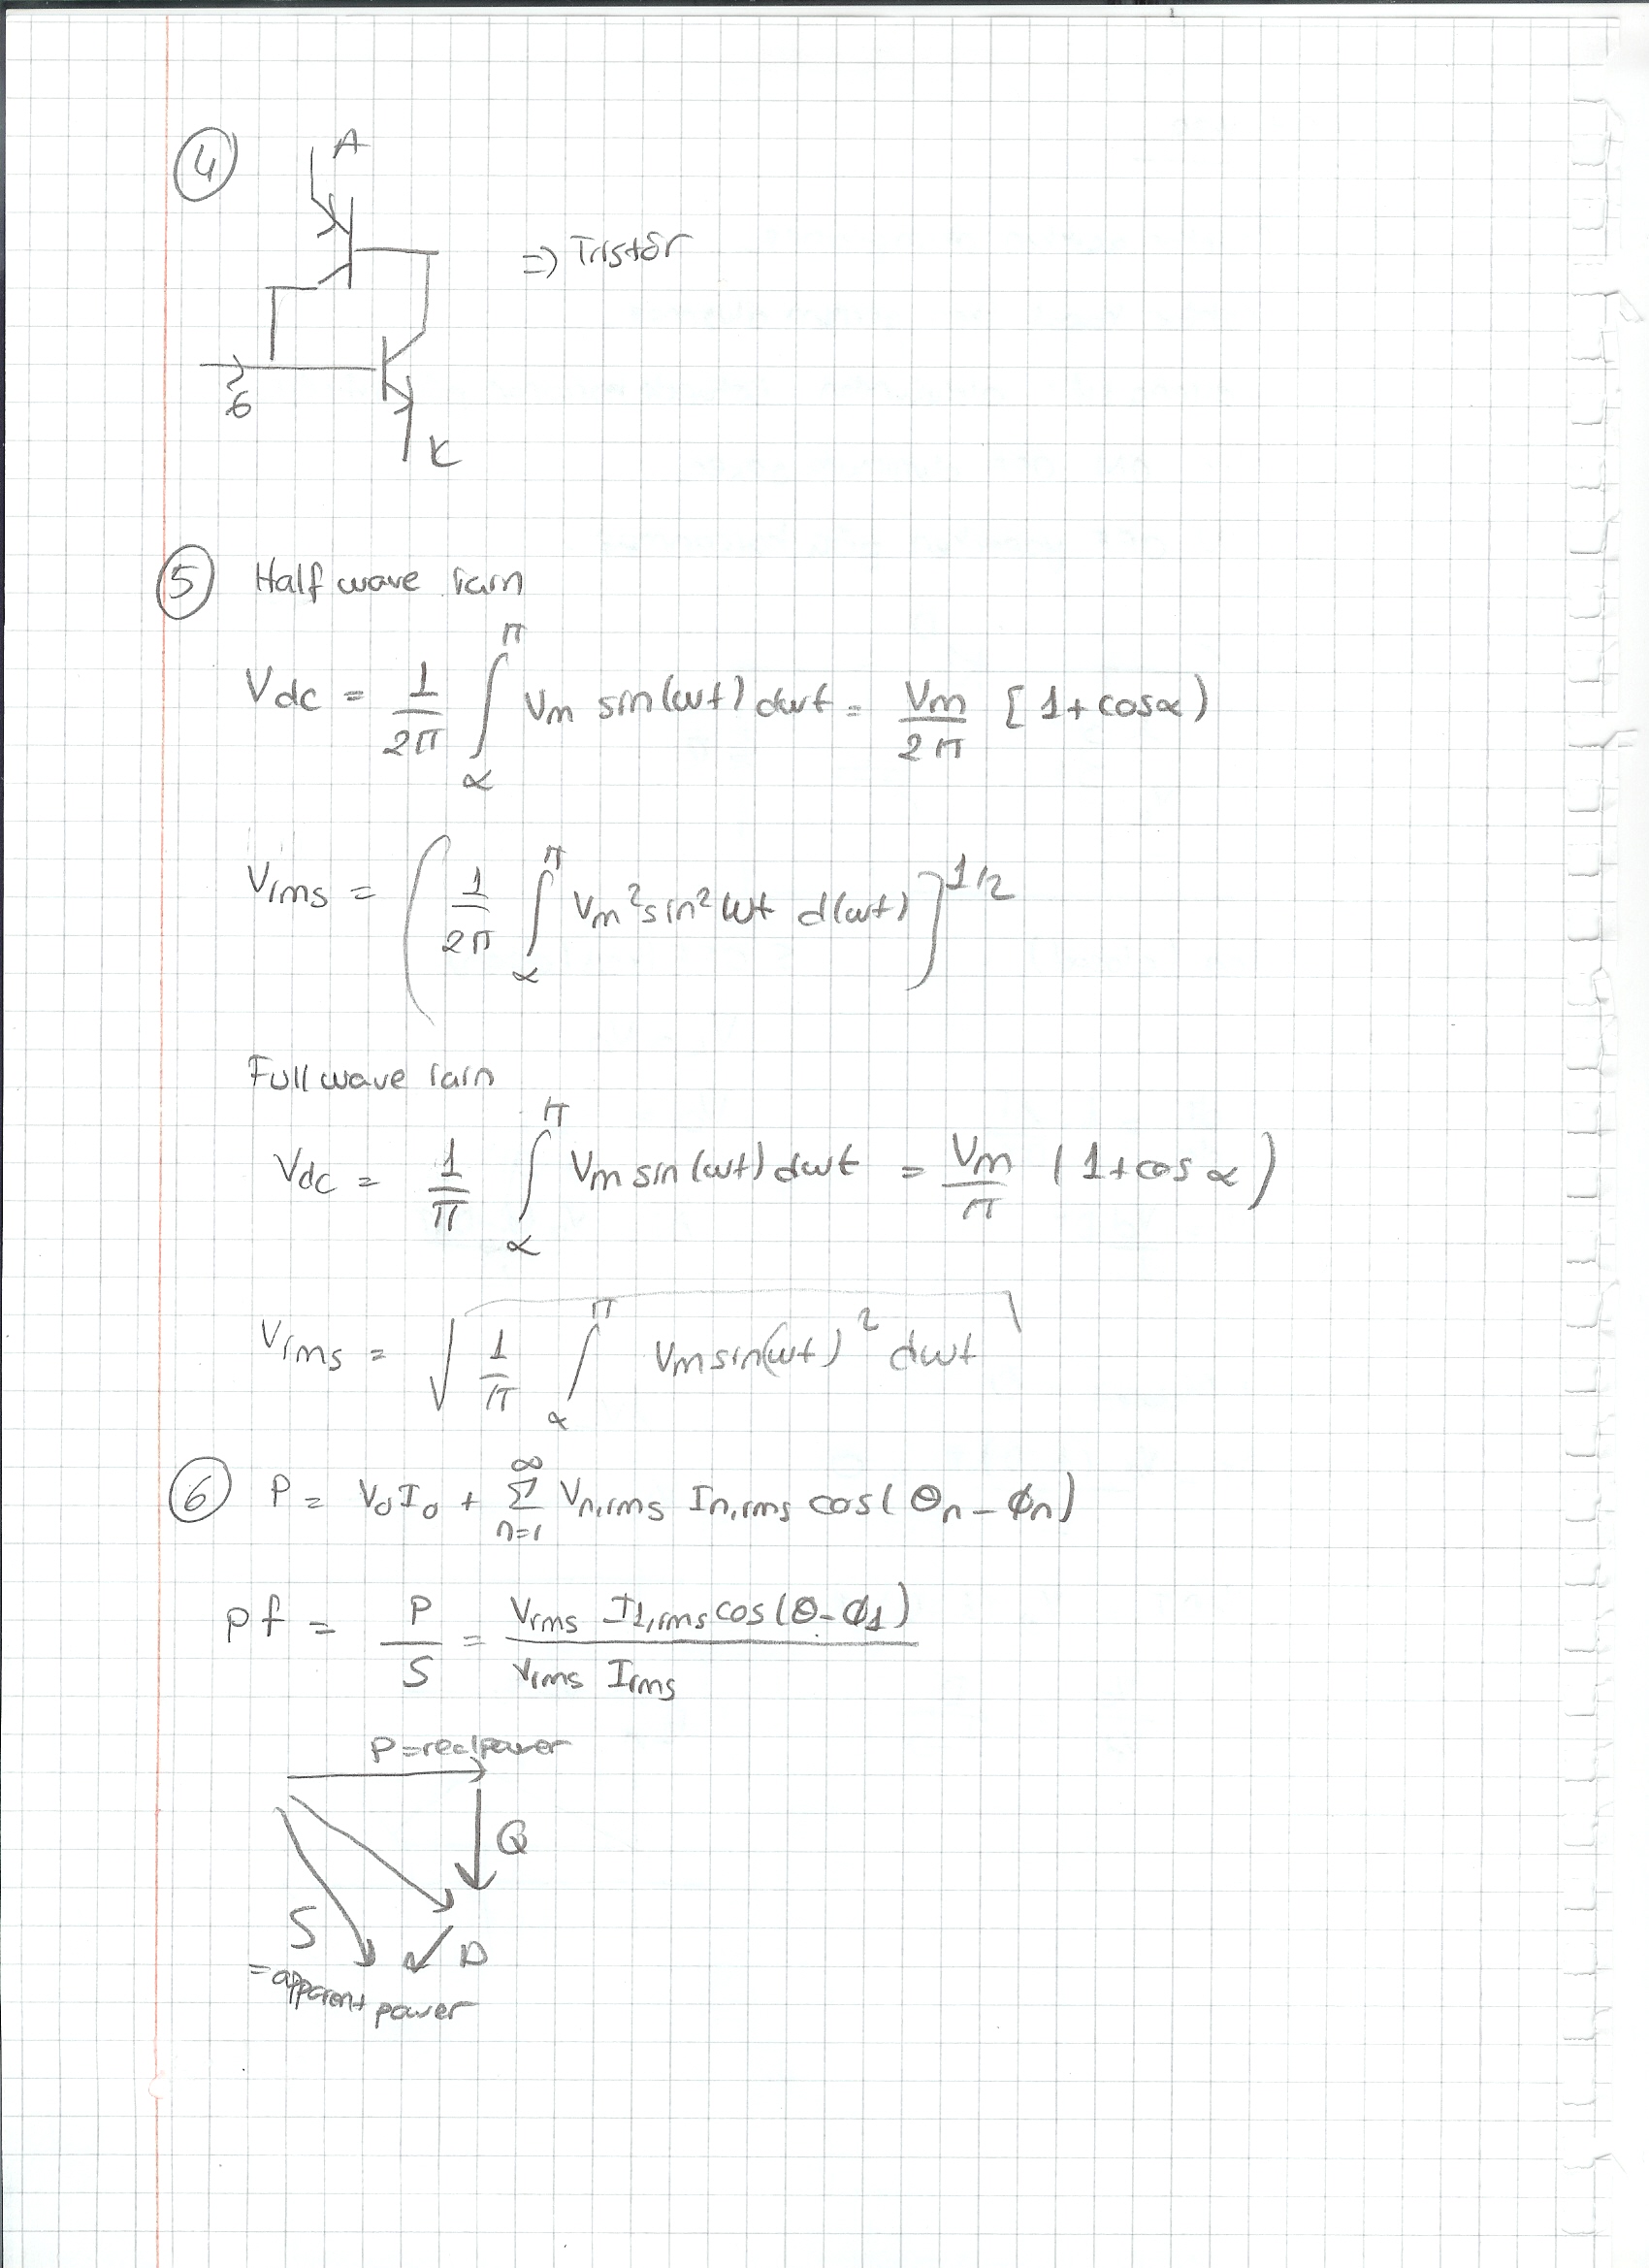 4
A
=> Tristör
G
K
5 Half wave için
Vdc = 1/2π ∫_α^π Vm sin(wt) dwt = Vm/2π [1+cosα)
Vrms = (1/2π ∫_α^π Vm² sin² wt d(wt)]^1/2
Full wave için
Vdc = 1/π ∫_α^π Vm sin(wt) dwt = Vm/π (1+cos α)
Vrms = √ 1/π ∫_α^π Vm sin(wt)² dwt
6 P = V₀I₀ + Σ_{n=1}^∞ Vn,rms In,rms cos(θn - ϕn)
pf = P/S = Vrms I1,rms cos(θ-ϕ1) / Vrms Irms
P=real power
Q
S
D
=apparent power